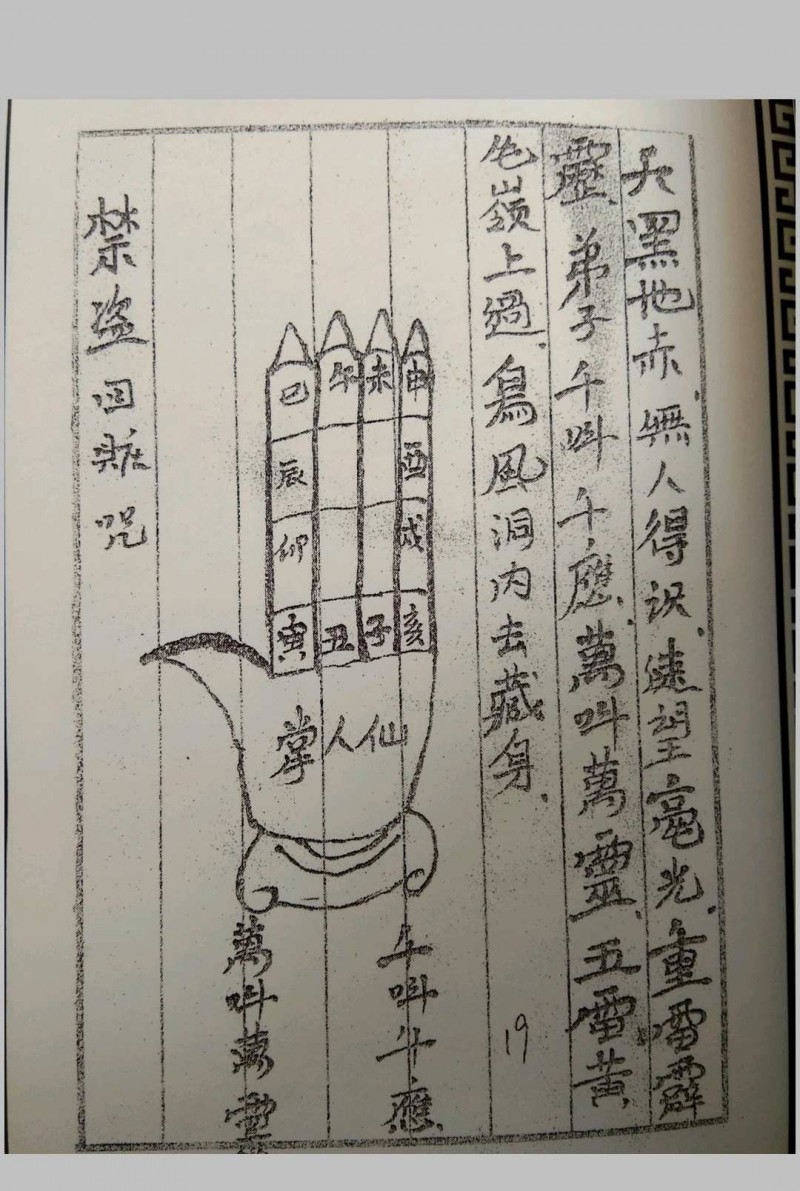 天黑地赤無人得识速望毫光重雷霹
靂弟子千叫千應萬叫萬靈五雷黄
嶺上過烏風洞内去藏身
19
巳 午 未 申
辰 酉
卯 戌
寅 丑 子 亥
仙人掌
千叫千應
萬叫萬靈
禁盗回咒